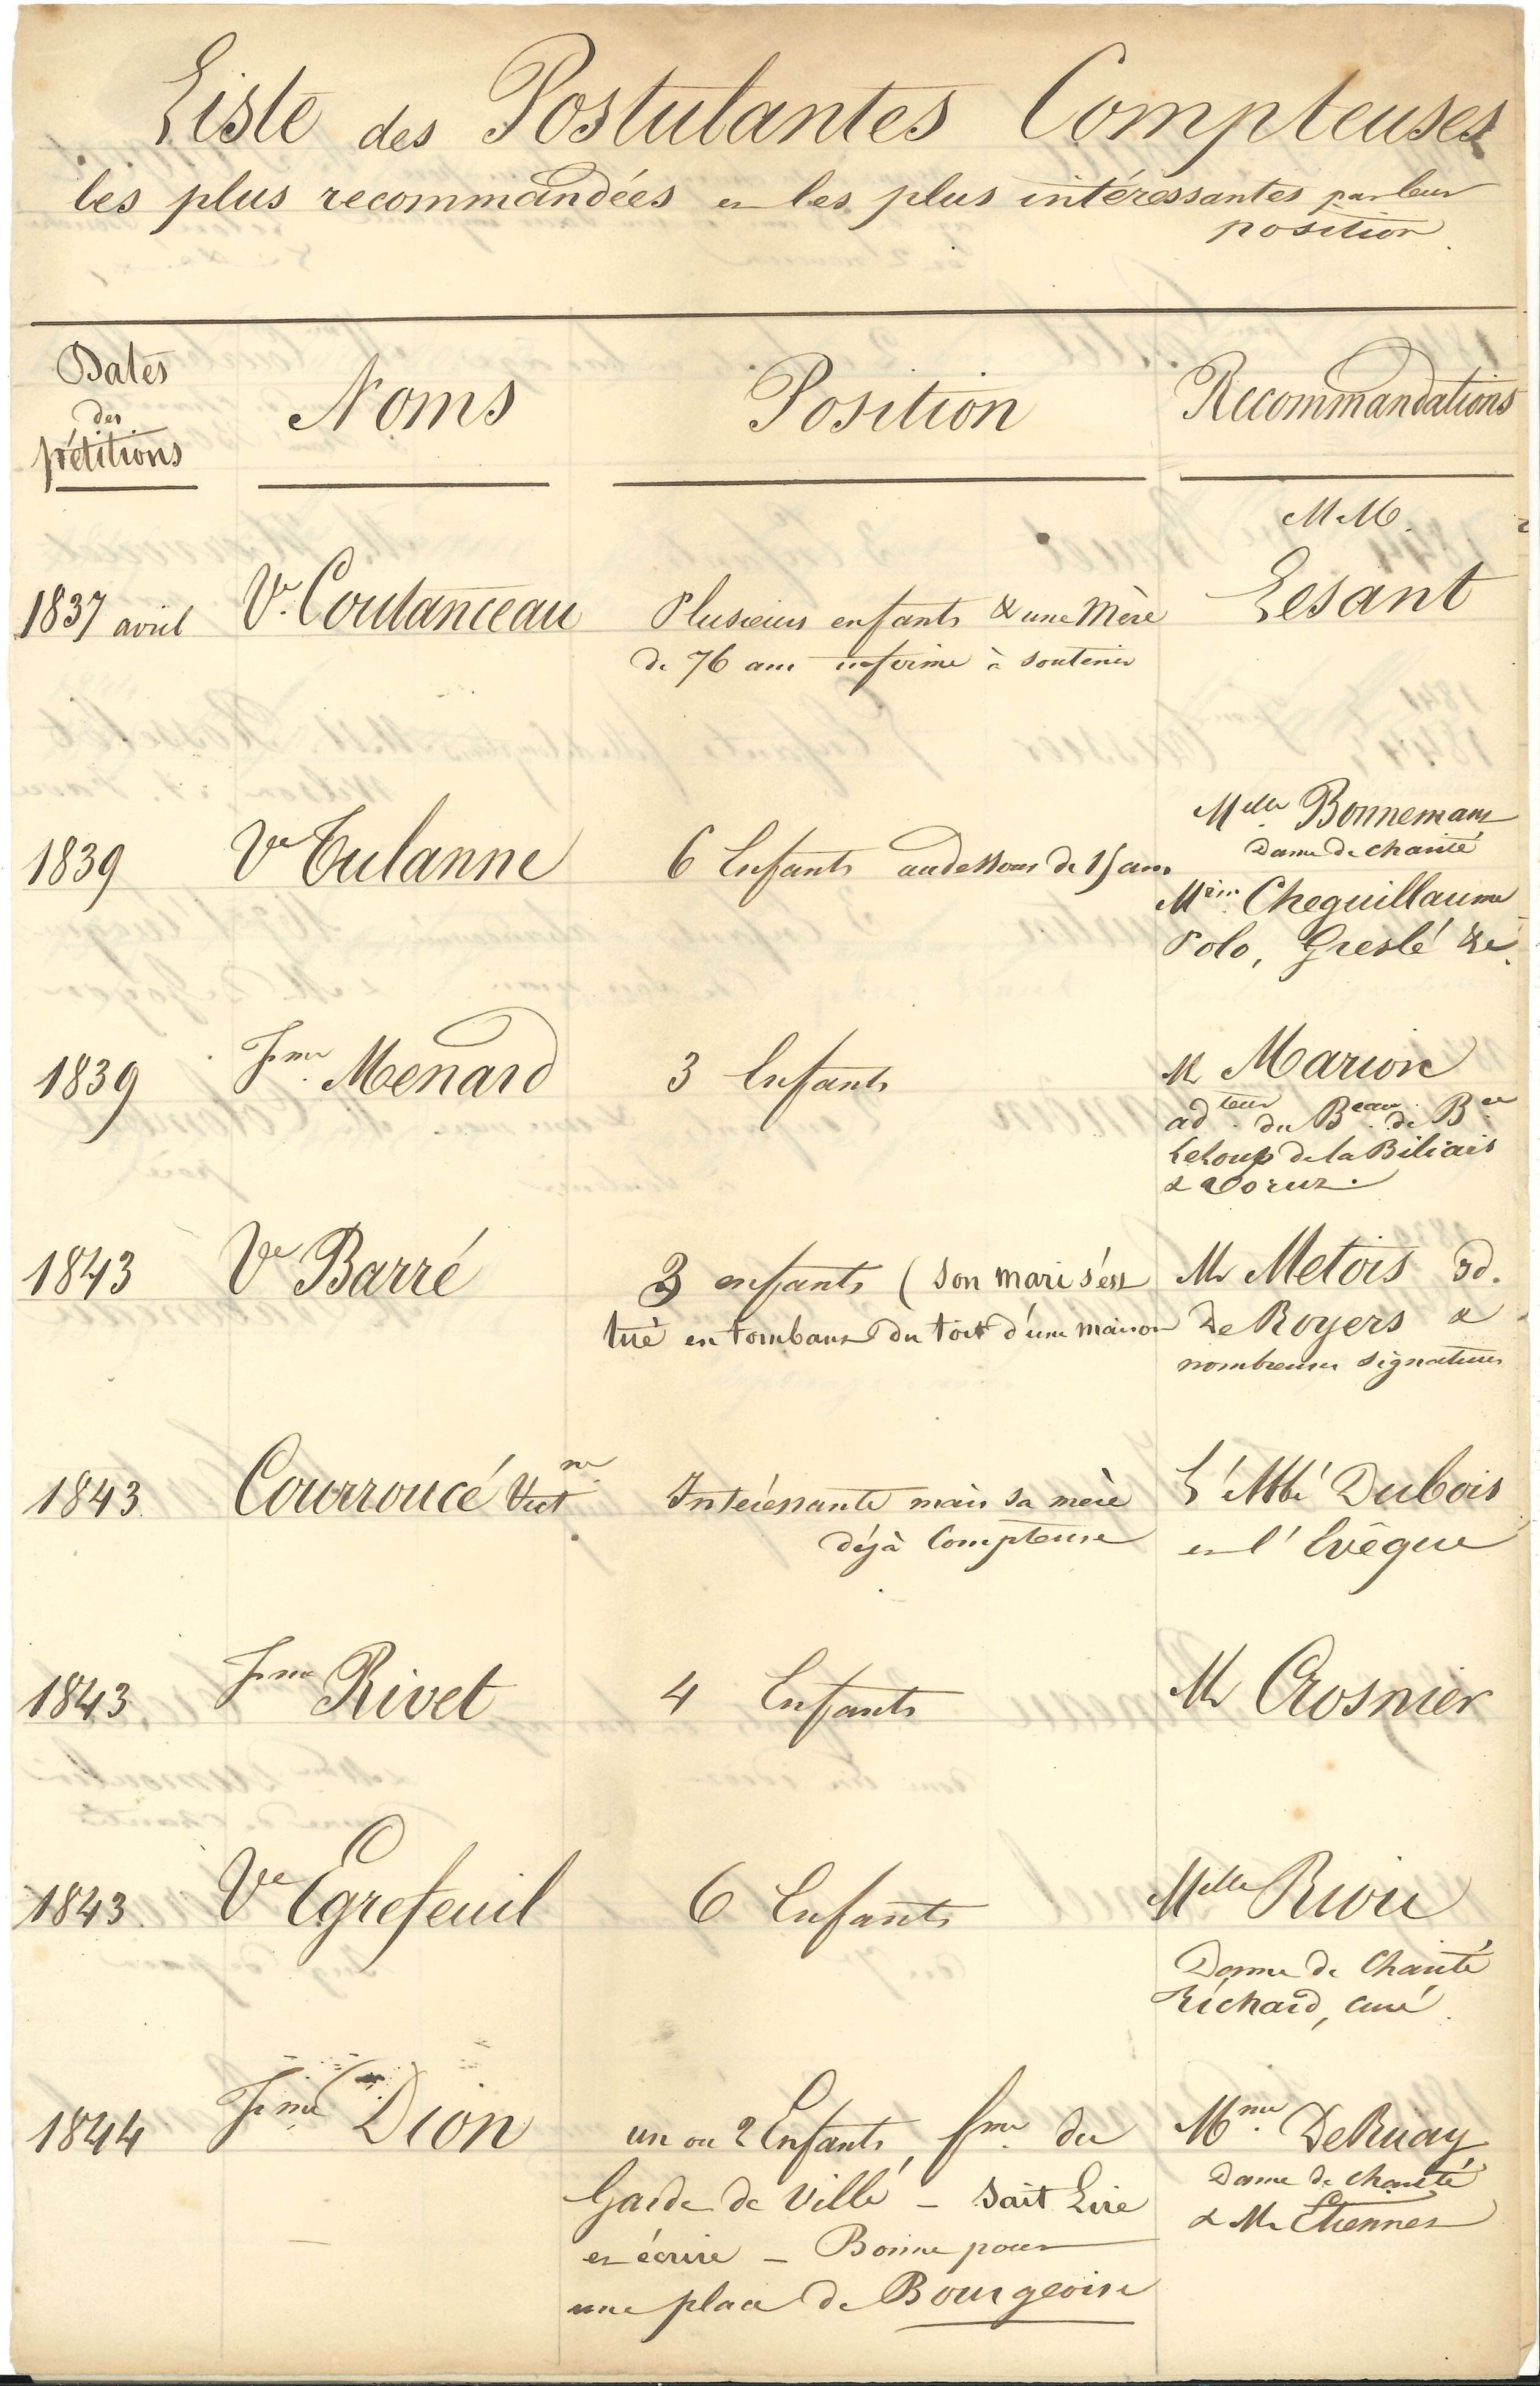 Liste des Postulantes Compteuses
les plus recommandées et les plus intéressantes par leur
position
Dates
des
pétitions
Noms
Position
Recommandations
M M.
1837 avril Ve. Coutanceau Plusieurs enfants & une Mère Lesant
de 76 ans infirme à soutenir
Melle Bonnemant
Dame de charité
1839 Ve Tulanne 6 Enfants audessous de 15 ans
Mrs. Cheguillaume
Polo, Greslé &c.
1839 Fme. Menard 3 Enfants M Marion
adteur. du Beau. de Bce
LeLoup de la Biliais
& Voruz.
1843 Ve Barré 3 enfants (son mari s'est Mr Metois Vd.
tué en tombant du toit d'une maison De Royers &
nombreuses signatures
1843. Courroucé Vict ne. Intéressante mais sa mère L'Abbé Dubois
déjà Compteuse et l'Evêque
1843 Fme Rivet 4 Enfants Mr Crosnier
1843. Ve Egrefeuil 6 Enfants Melle Riou
Dame de Charité
Richard, curé.
1844 Fme Dion un ou 2 Enfants, fme. du Mme. DeRuay
Garde de Ville – Sait Lire Dame de charité
et écrire – Bonne pour & Mr Etiennez
une place de Bourgeoise